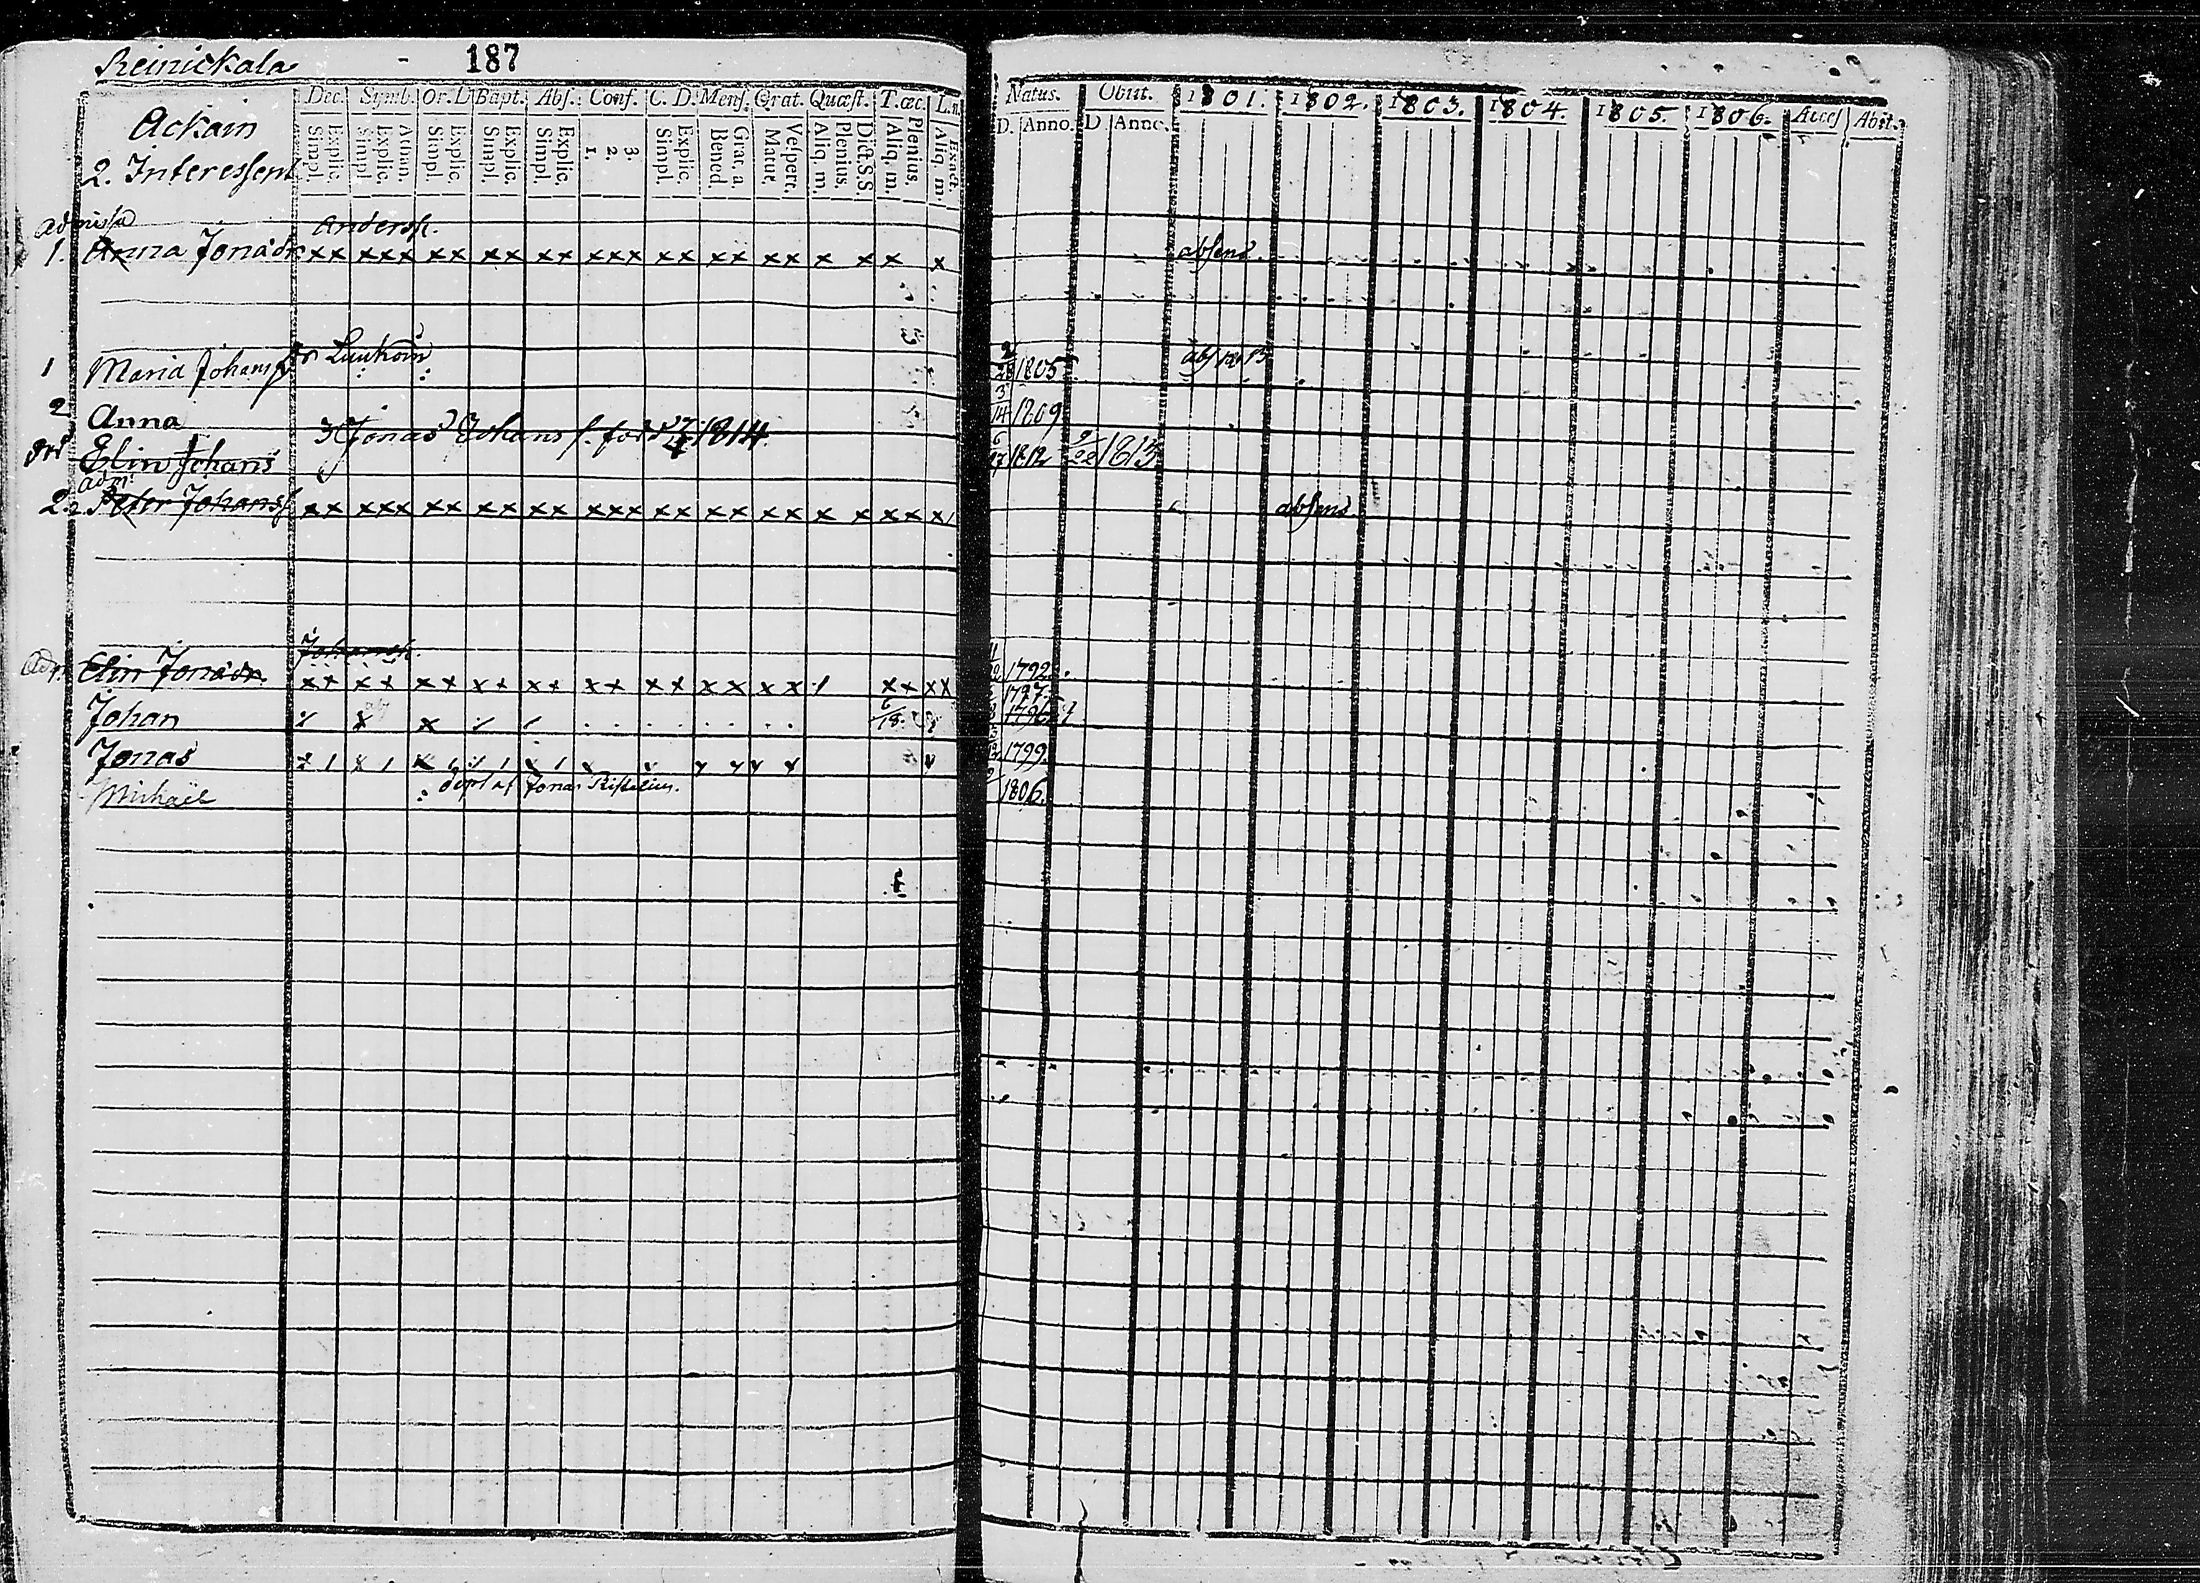 Reinickala - 187
Dec. Symb. Or. D Bapt. Abs. Conf. C. D. Mens. Grat. Quæst. T. œc. L. n.
Ackain
2. Interessent
Simpl. Explic. Simpl. Explic. Athan. Simpl. Explic. Simpl. Explic. Simpl. Explic. 1. 2. 3. Simpl. Explic. Bened. Grat. a. Matut. Vespert. Aliq. m. Plenius. Dict. S. S. Aliq. m. Plenius. Aliq. m. Exact.
Natus. Obiit. 1801. 1802. 1803. 1804. 1805. 1806. Acces Abit.
D. Anno. D Anno.
admissa Andersk.
1. Anna Jonadr xx xxx xx xx xx xxx xx xx xx x x x x absens
1 Maria Johans dr Luukoin 2/28 1805 abs
2 Anna 3/14 1809
3 Jonas Johans f. föd 1814
död Elin Johans 1812 9/22 1813
adm.
2. Peter Johanss xx xxx xx xx xx xxx xx xx xx x x xx x absens
Johansk.
Adm. Elin Jonadr. xx xx xx xx xx xx xx xx xx 1 xx xx 1792
1797
Johan 6/18 1796
Jonas 1799
Michaël döpt af Jonas Ristelius. 1806.